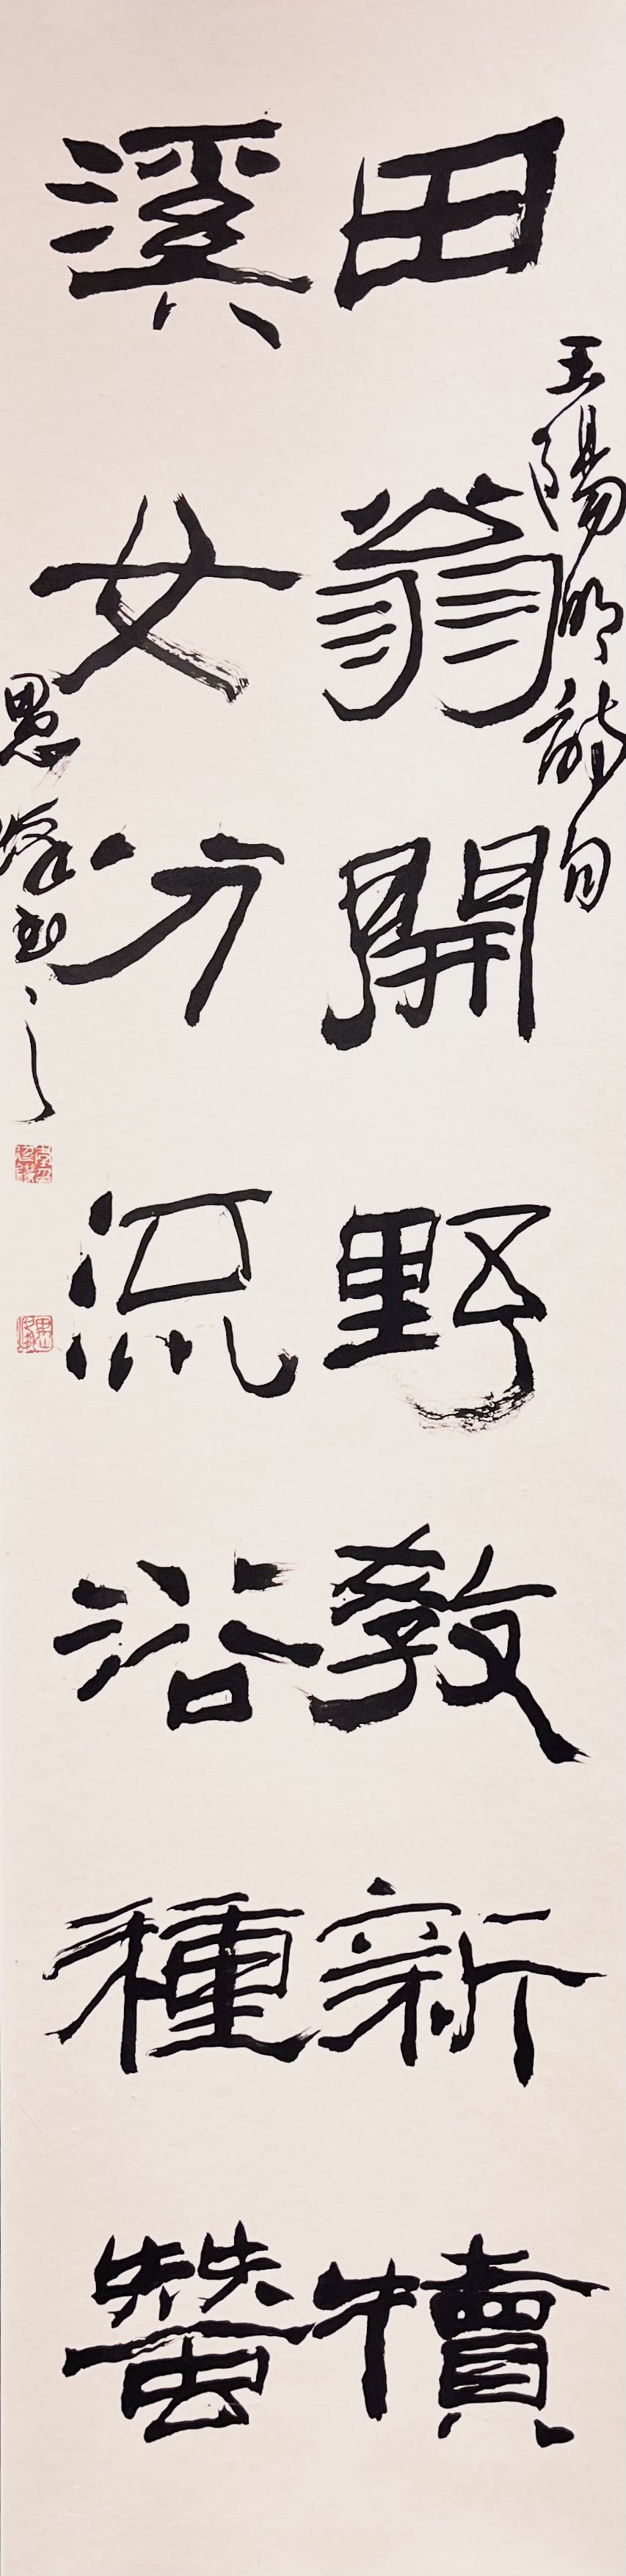 王陽明詩句
田翁開野教新犢
溪女分流浴種蠶
愚峰书之